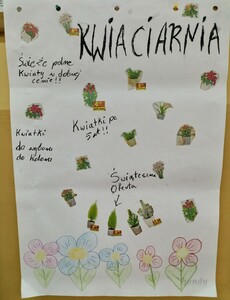 KWIACIARNIA
Świeże polne
Kwiaty w dobrej
cenie!!
Kwiatki po
5 zł!!
Kwiatki
do wyboru
do koloru
Świąteczna
Oferta